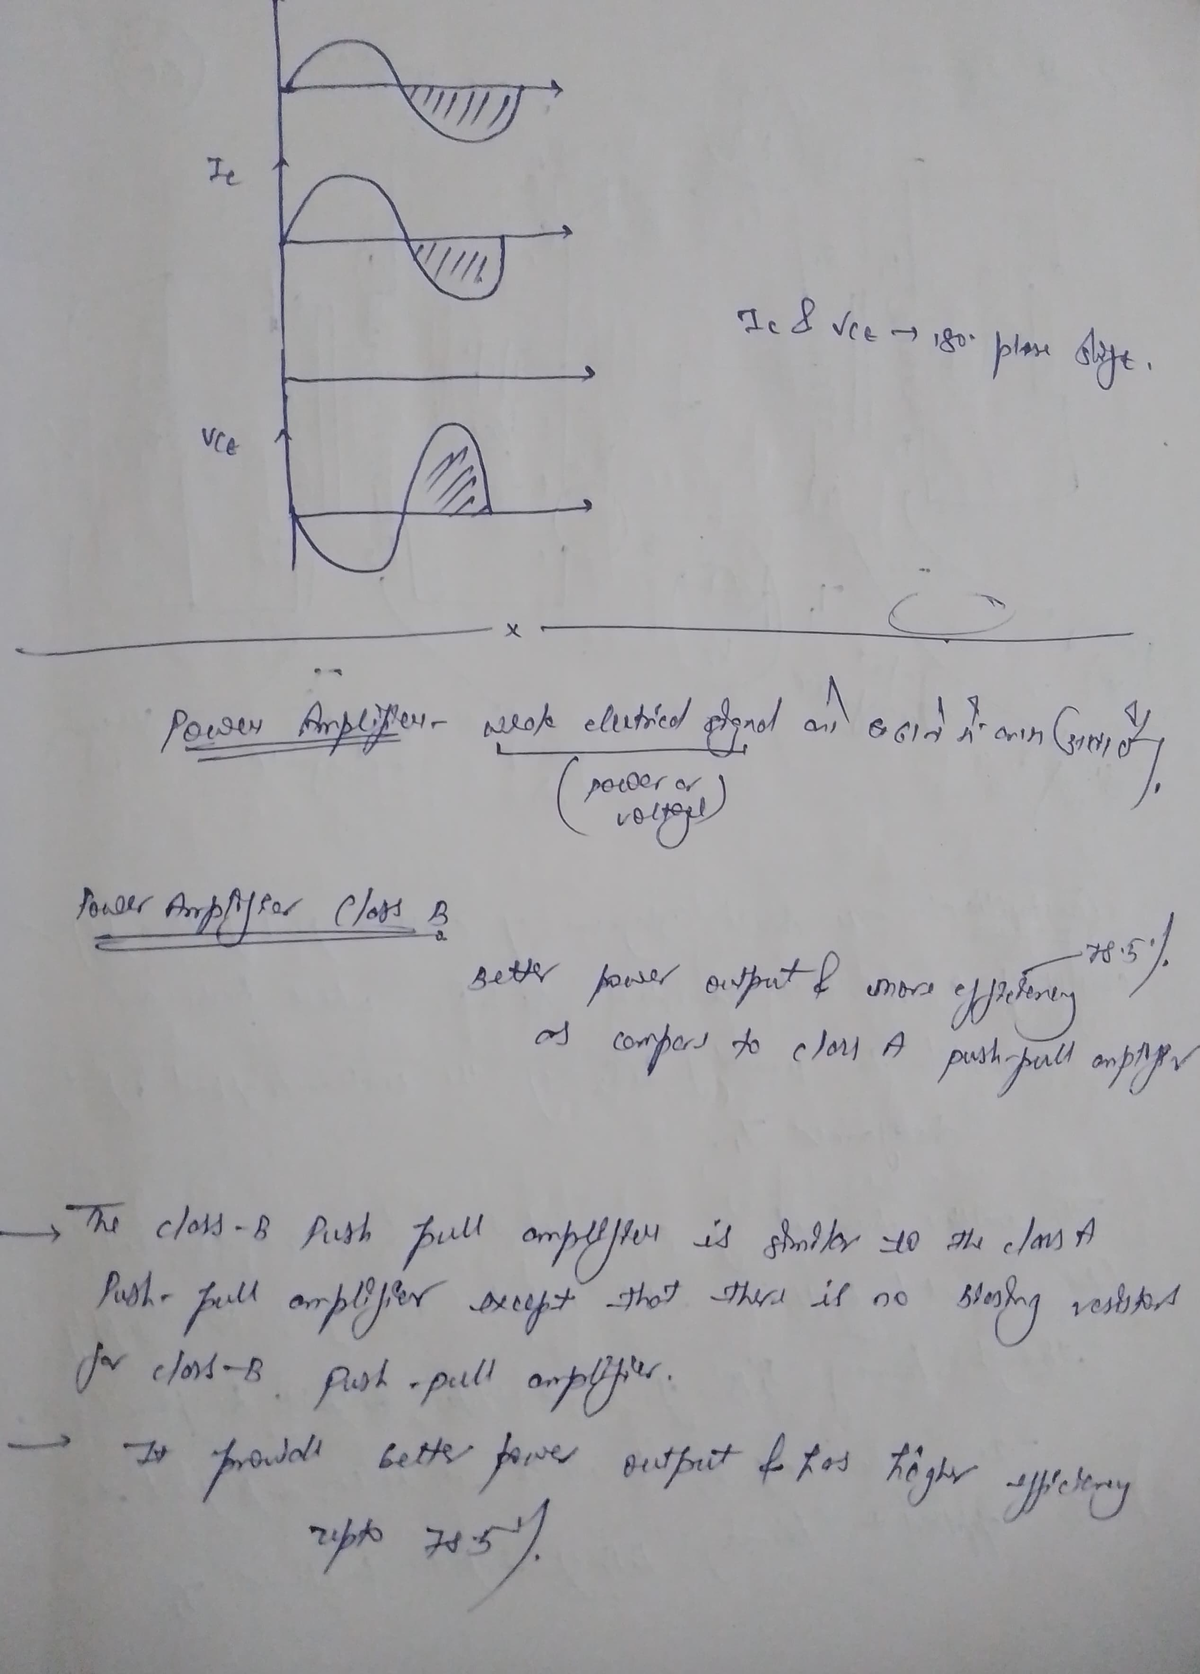 Ic
Ic & VCE → 180° phase shift.
VCE
x
Power Amplifier - weak electrical signal को बढाने में काम (आता है).
(power or
voltage)
Power Amplifier Class B
78.5%
Better power output & more efficiency
as compare to class A push-pull amplifier
→ The class-B Push pull amplifier is similar to the class A
Push-pull amplifier except that there is no biasing resistors
for class-B push-pull amplifier.
→ It provide better power output & has higher efficiency
upto 78.5%.